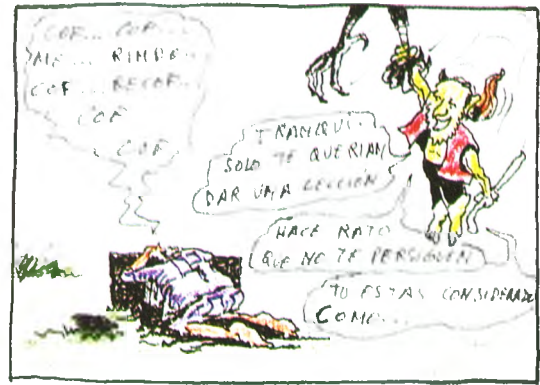 COF... COF...
ME... RINDO...
COF... RECOF...
COF
COF
TRANQUI...
SOLO TE QUERIAN
DAR UNA LECCIÓN
HACE RATO
QUE NO TE PERSIGUEN
TU ESTAS CONSIDERADO
COMO...